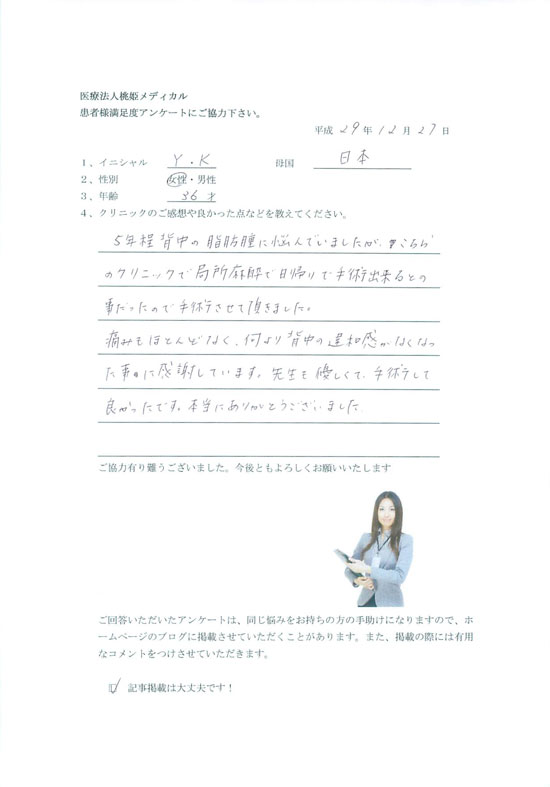 医療法人桃姫メディカル
患者様満足度アンケートにご協力下さい。
平成 29 年 12 月 27 日
1、イニシャル Y・K 母国 日本
2、性別 女性・男性
3、年齢 36才
4、クリニックのご感想や良かった点などを教えてください。
5年程背中の脂肪腫に悩んでいましたが、こちら
のクリニックで局所麻酔で日帰りで手術出来るとの
事だったので手術させて頂きました。
痛みもほとんどなく、何より背中の違和感がなくなっ
た事に感謝しています。先生も優しくて、手術して
良かったです。本当にありがとうございました。
ご協力有り難うございました。今後ともよろしくお願いいたします
ご回答いただいたアンケートは、同じ悩みをお持ちの方の手助けになりますので、ホ
ームページのブログに掲載させていただくことがあります。また、掲載の際には有用
なコメントをつけさせていただきます。
☑ 記事掲載は大丈夫です！